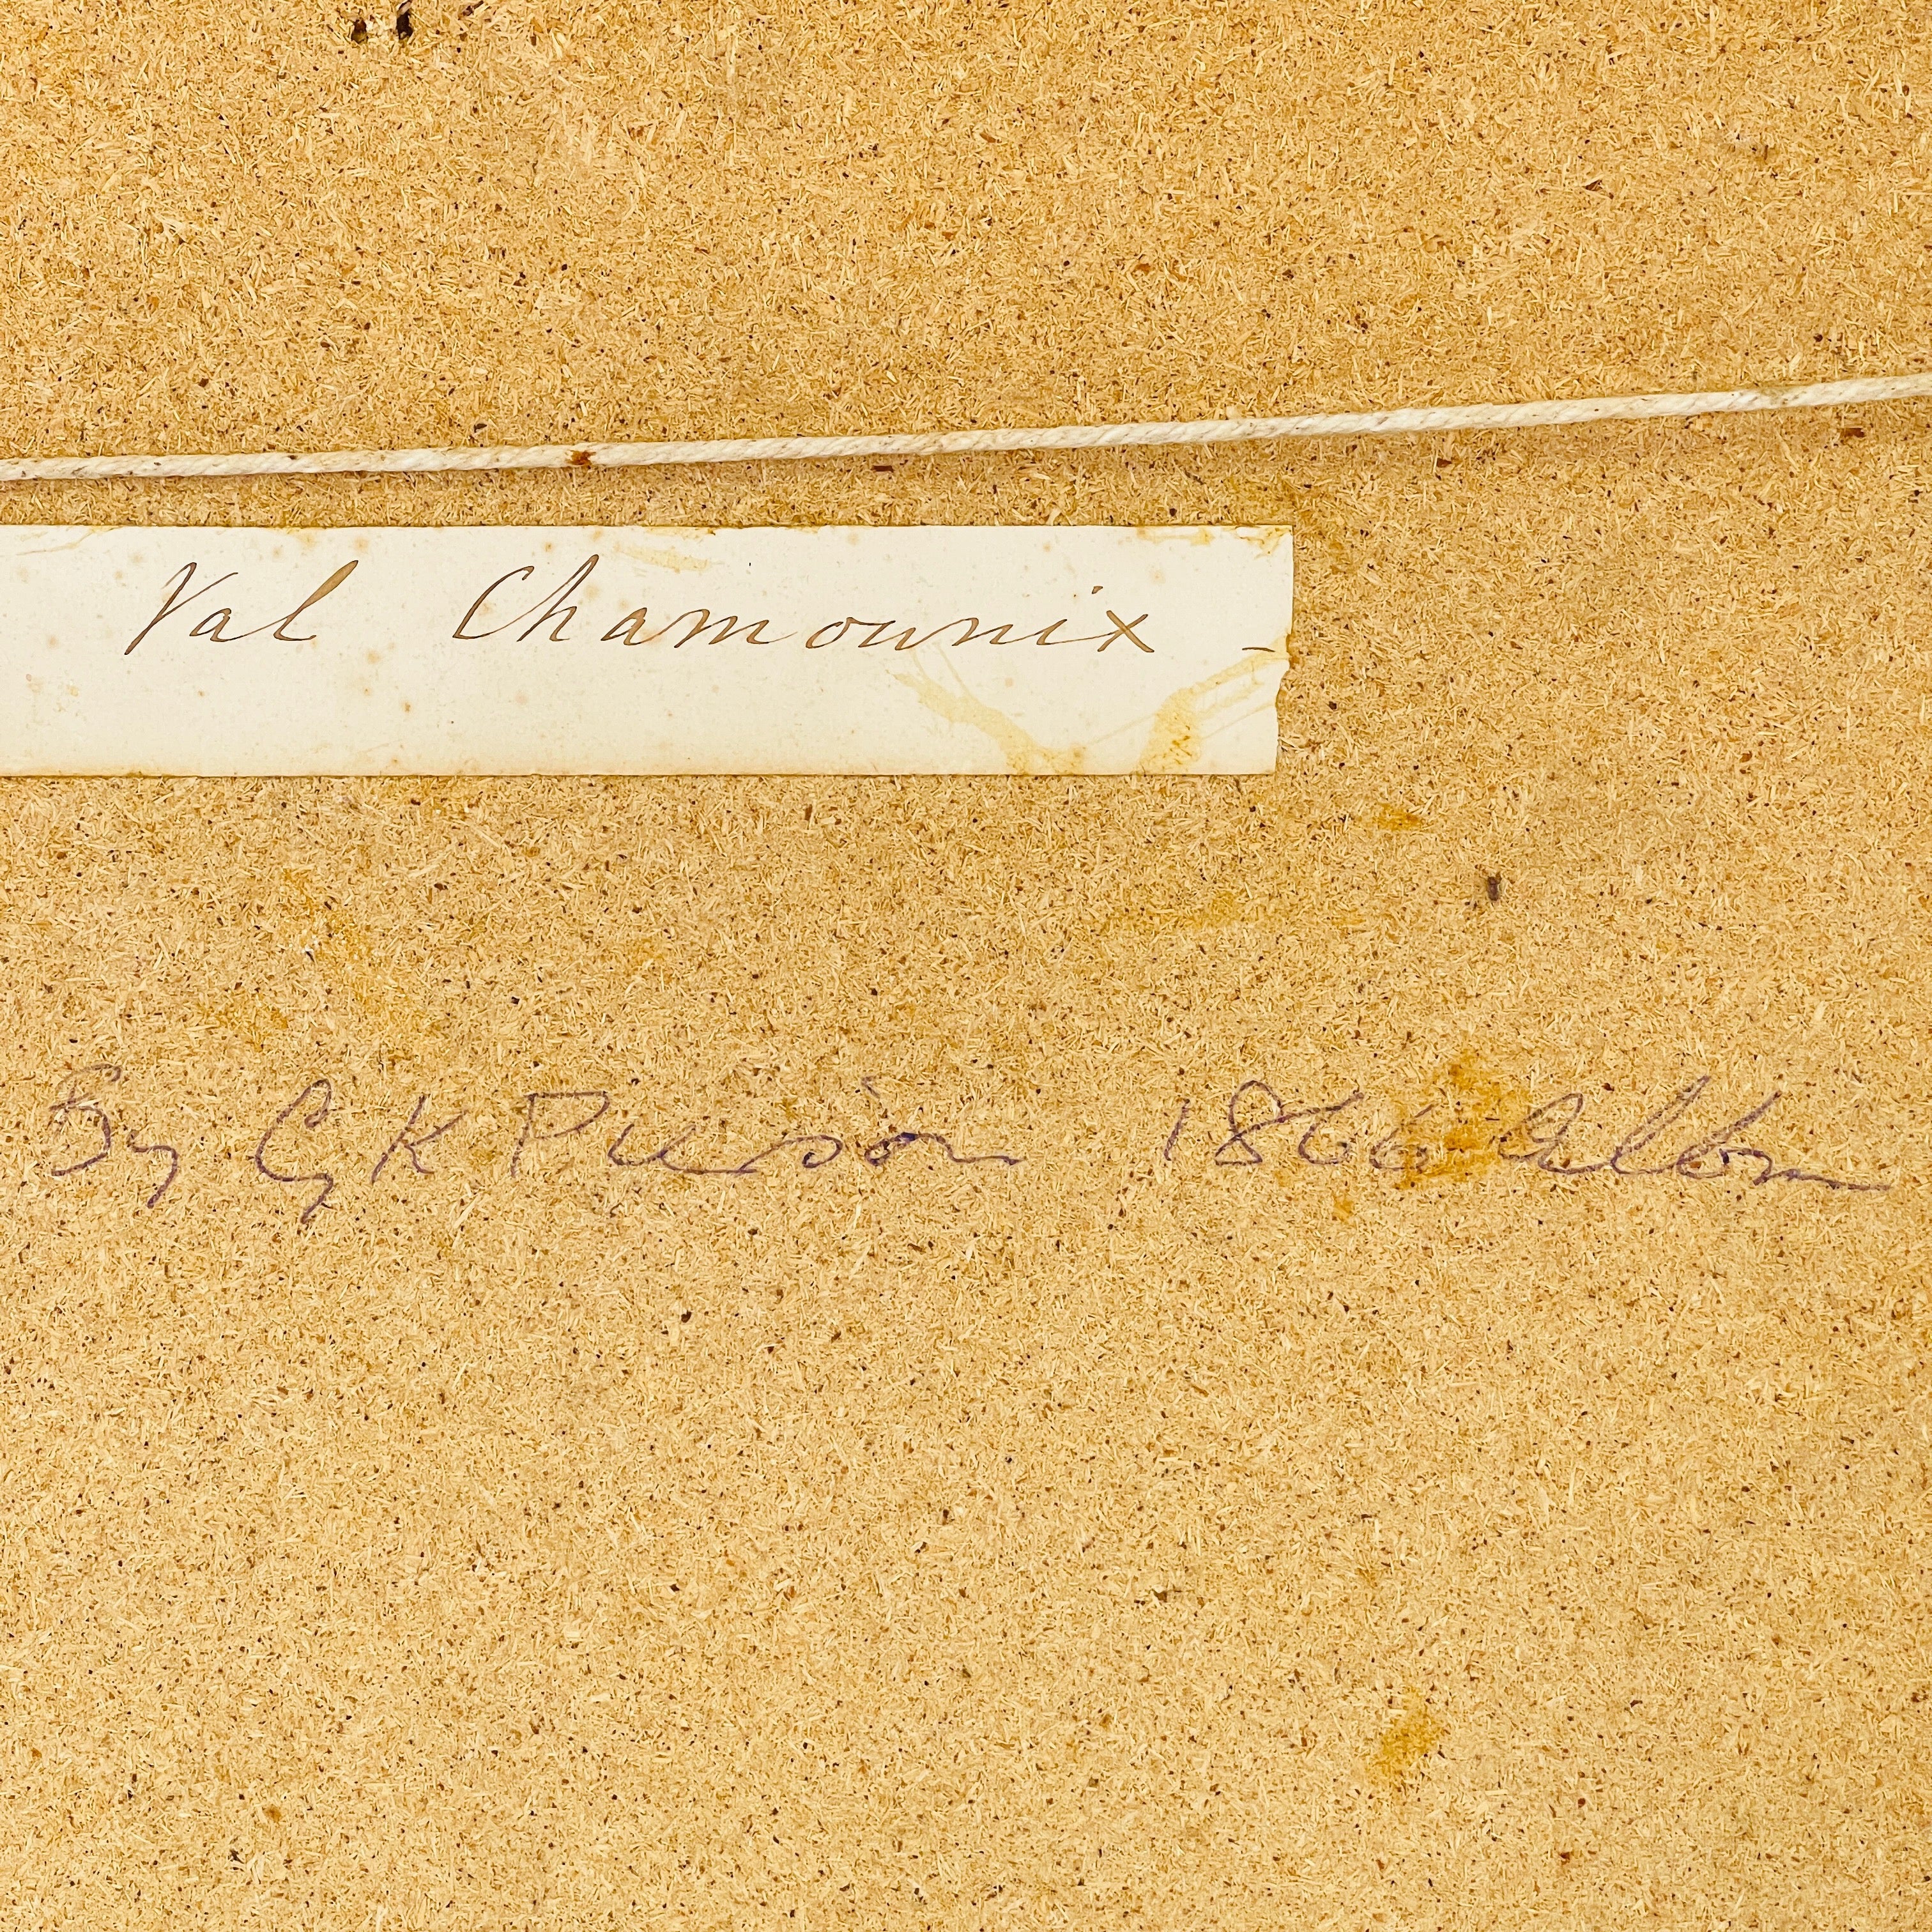 Val Chamounix -
By G K Pierson 1866 Album